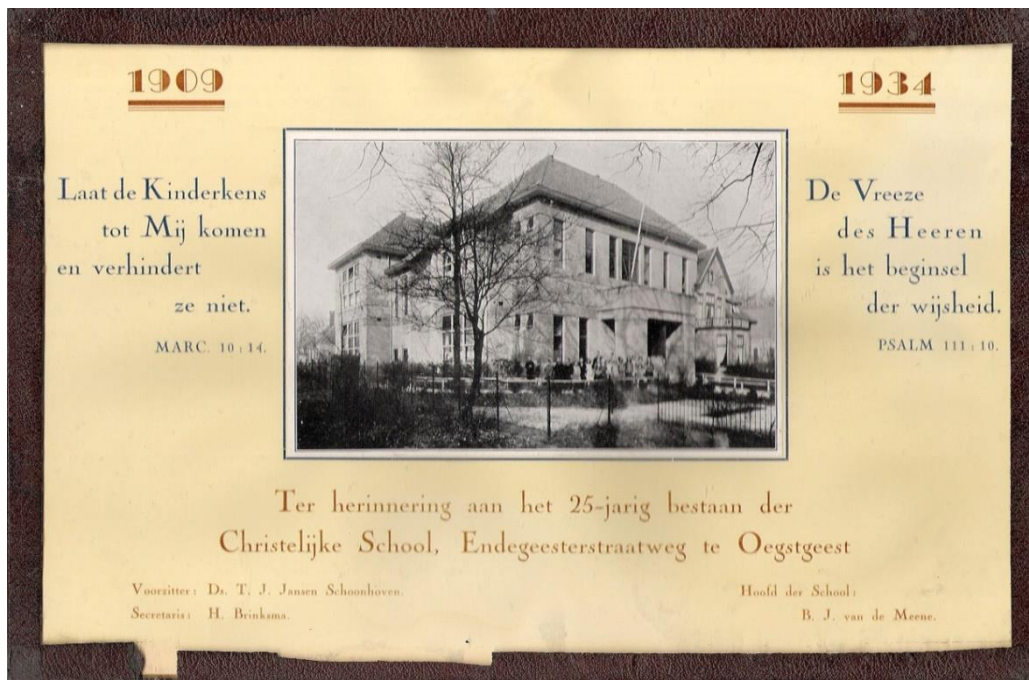 1909
1934
Laat de Kinderkens
tot Mij komen
en verhindert
ze niet.
MARC. 10 : 14.
De Vreeze
des Heeren
is het beginsel
der wijsheid.
PSALM 111 : 10.
Ter herinnering aan het 25-jarig bestaan der
Christelijke School, Endegeesterstraatweg te Oegstgeest
Voorzitter: Ds. T. J. Jansen Schoonhoven.
Secretaris: H. Brinksma.
Hoofd der School:
B. J. van de Meene.